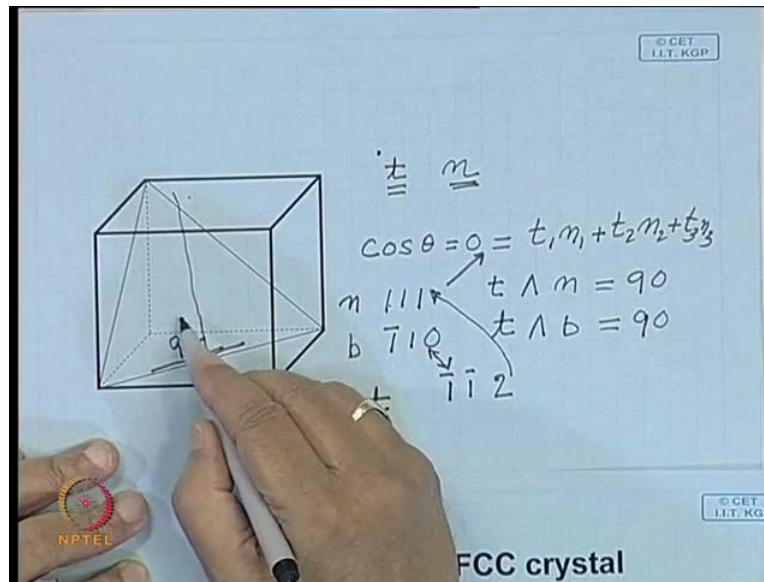 © CET
I.I.T. KGP
t n
cos θ = 0 = t₁n₁ + t₂n₂ + t₃n₃
n 111 t ∧ n = 90
b 1̄10 t ∧ b = 90
t 1̄ 1̄ 2
9
© CET
I.I.T. KG
FCC crystal
NPTEL